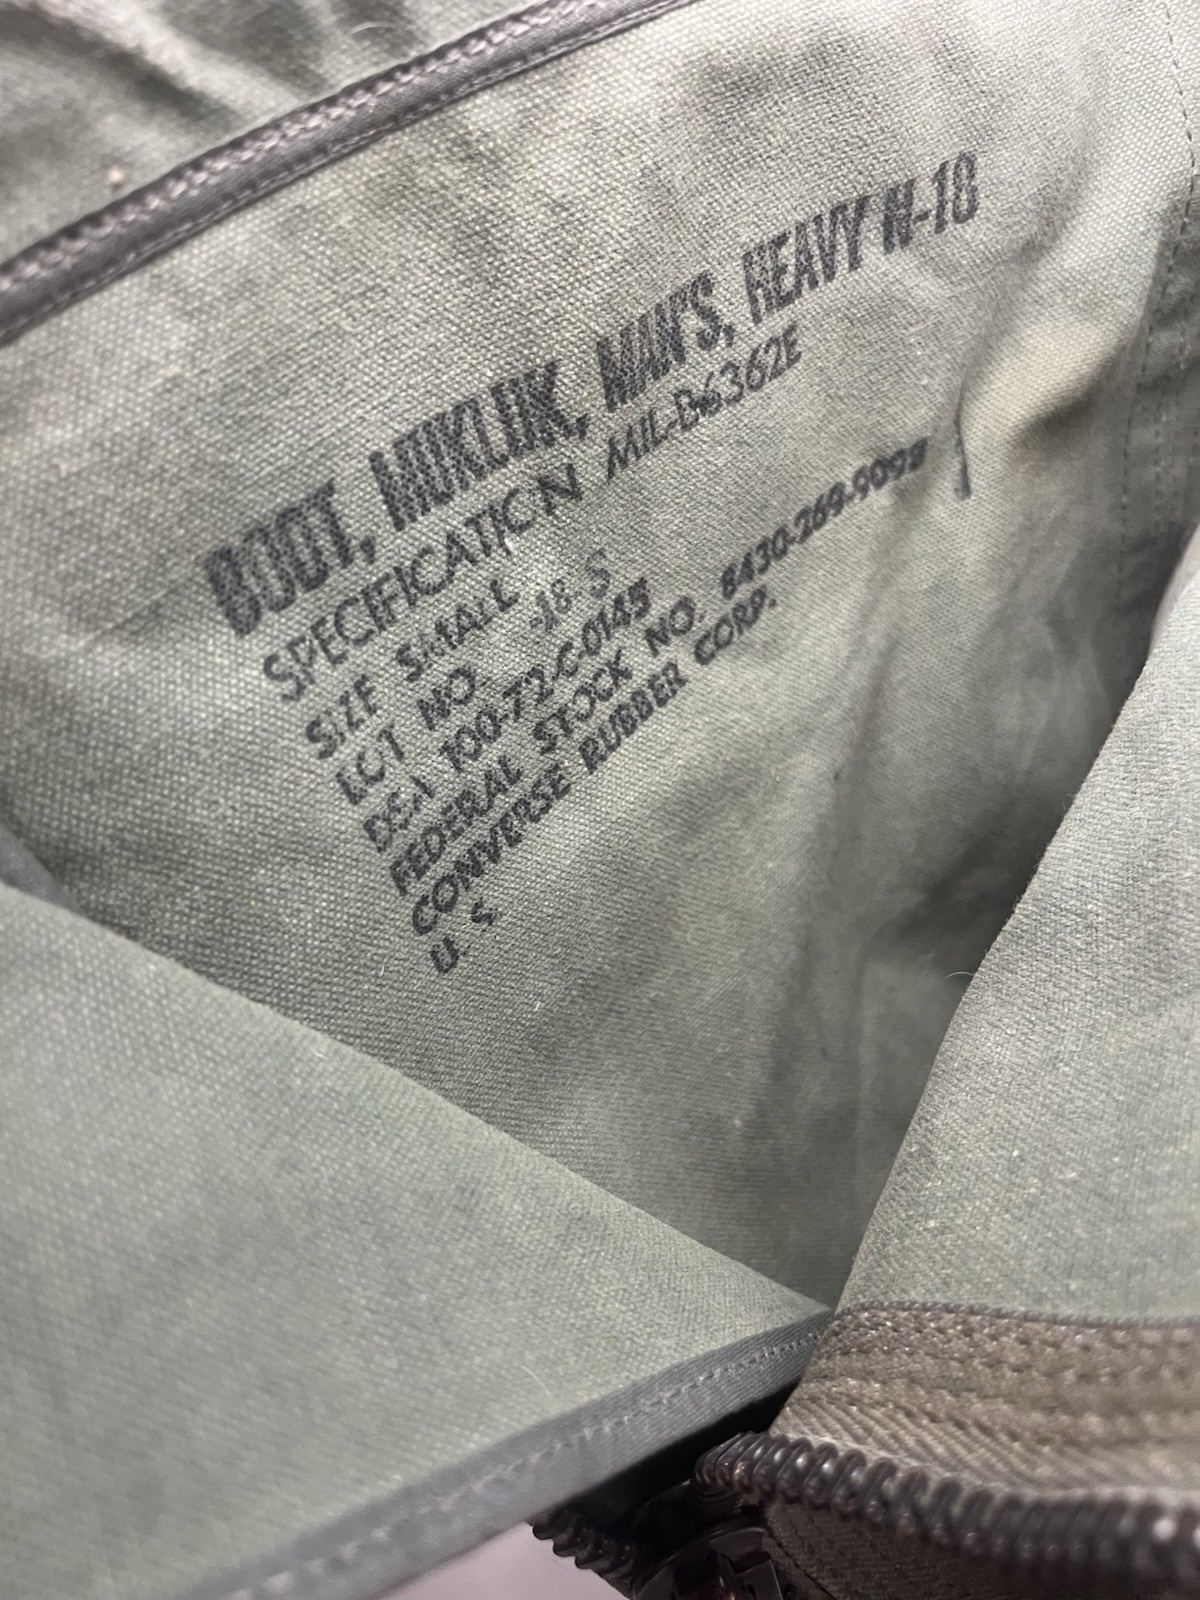 BOOT, MUKLUK, MAN'S, HEAVY N-1B
SPECIFICATION MIL-B-6362E
SIZE SMALL S
LOT NO. -18
DSA 100-72-C-0145
FEDERAL STOCK NO. 8430-269-9098
CONVERSE RUBBER CORP.
U. S.